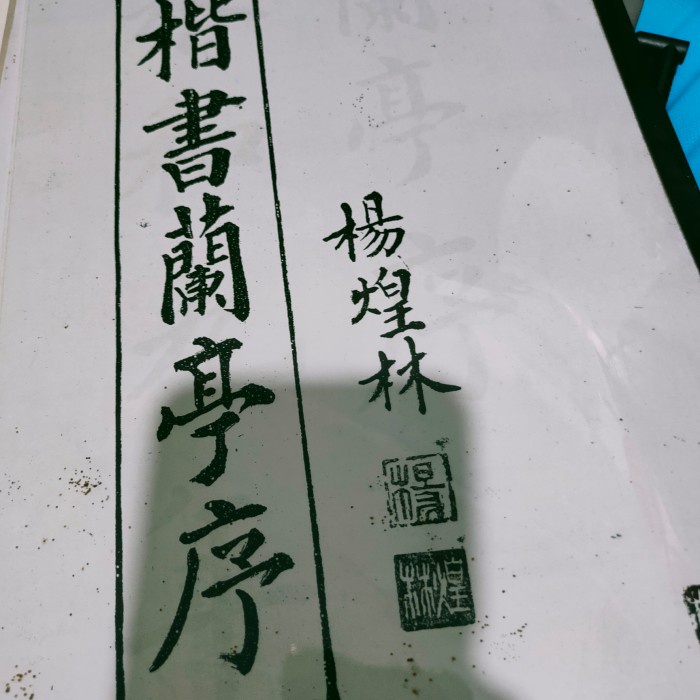 楷書蘭亭序
楊煌林
楊
煌林